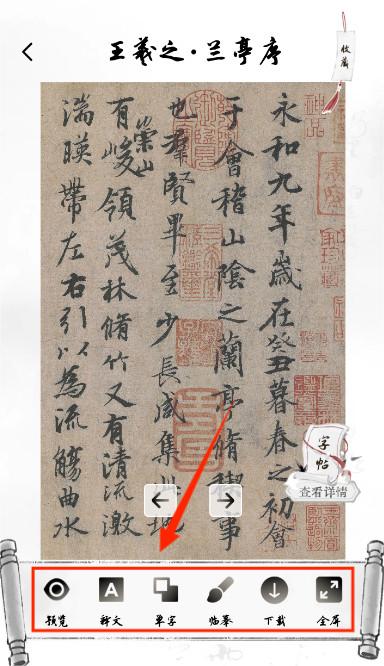 王羲之·兰亭序
收藏
永和九年歳在癸丑暮春之初會
于會稽山陰之蘭亭脩禊事
也羣賢畢至少長咸集此地
有崇山峻領茂林脩竹又有清流激
湍暎帶左右引以為流觴曲水
字帖
查看详情
预览
释文
单字
临摹
下载
全屏